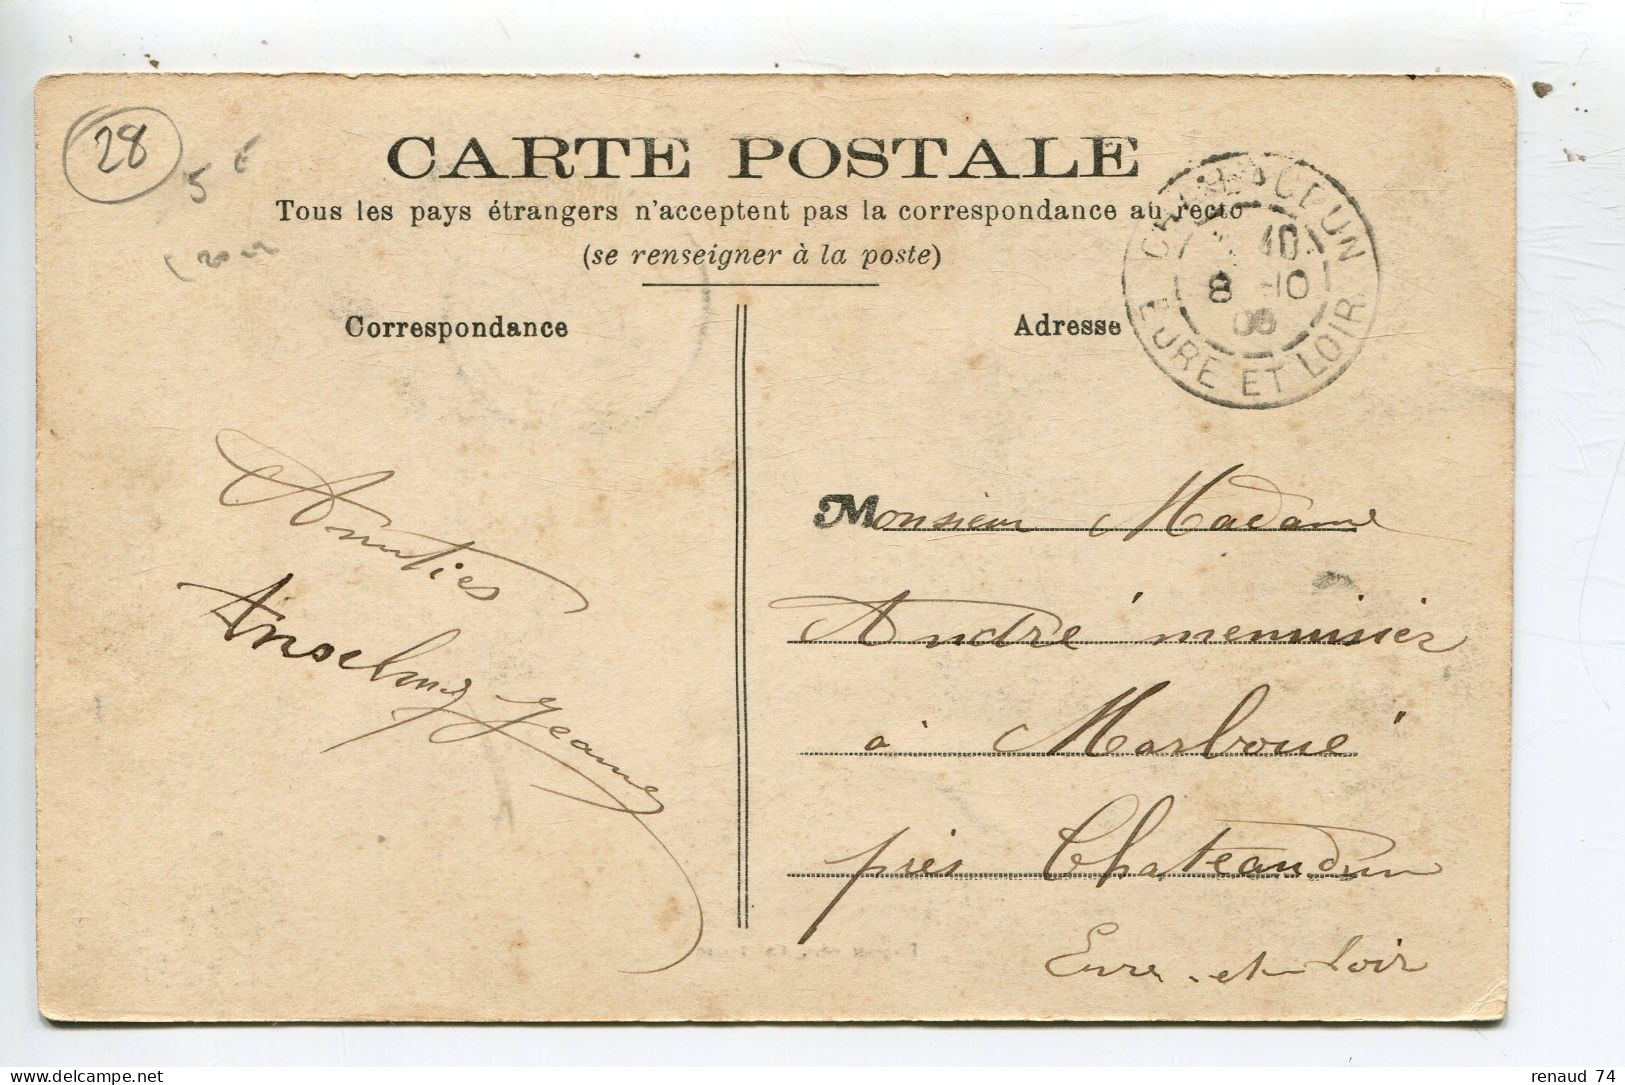 28
5 €
CARTE POSTALE
Tous les pays étrangers n'acceptent pas la correspondance au recto
(se renseigner à la poste)
CHATEAUDUN
10
8 -10
EURE ET LOIR
Correspondance
Adresse
Amities
Jeanne
Monsieur Madame
André menuisier
à Marboué
près Chateaudun
Eure-et-Loir
renaud 74